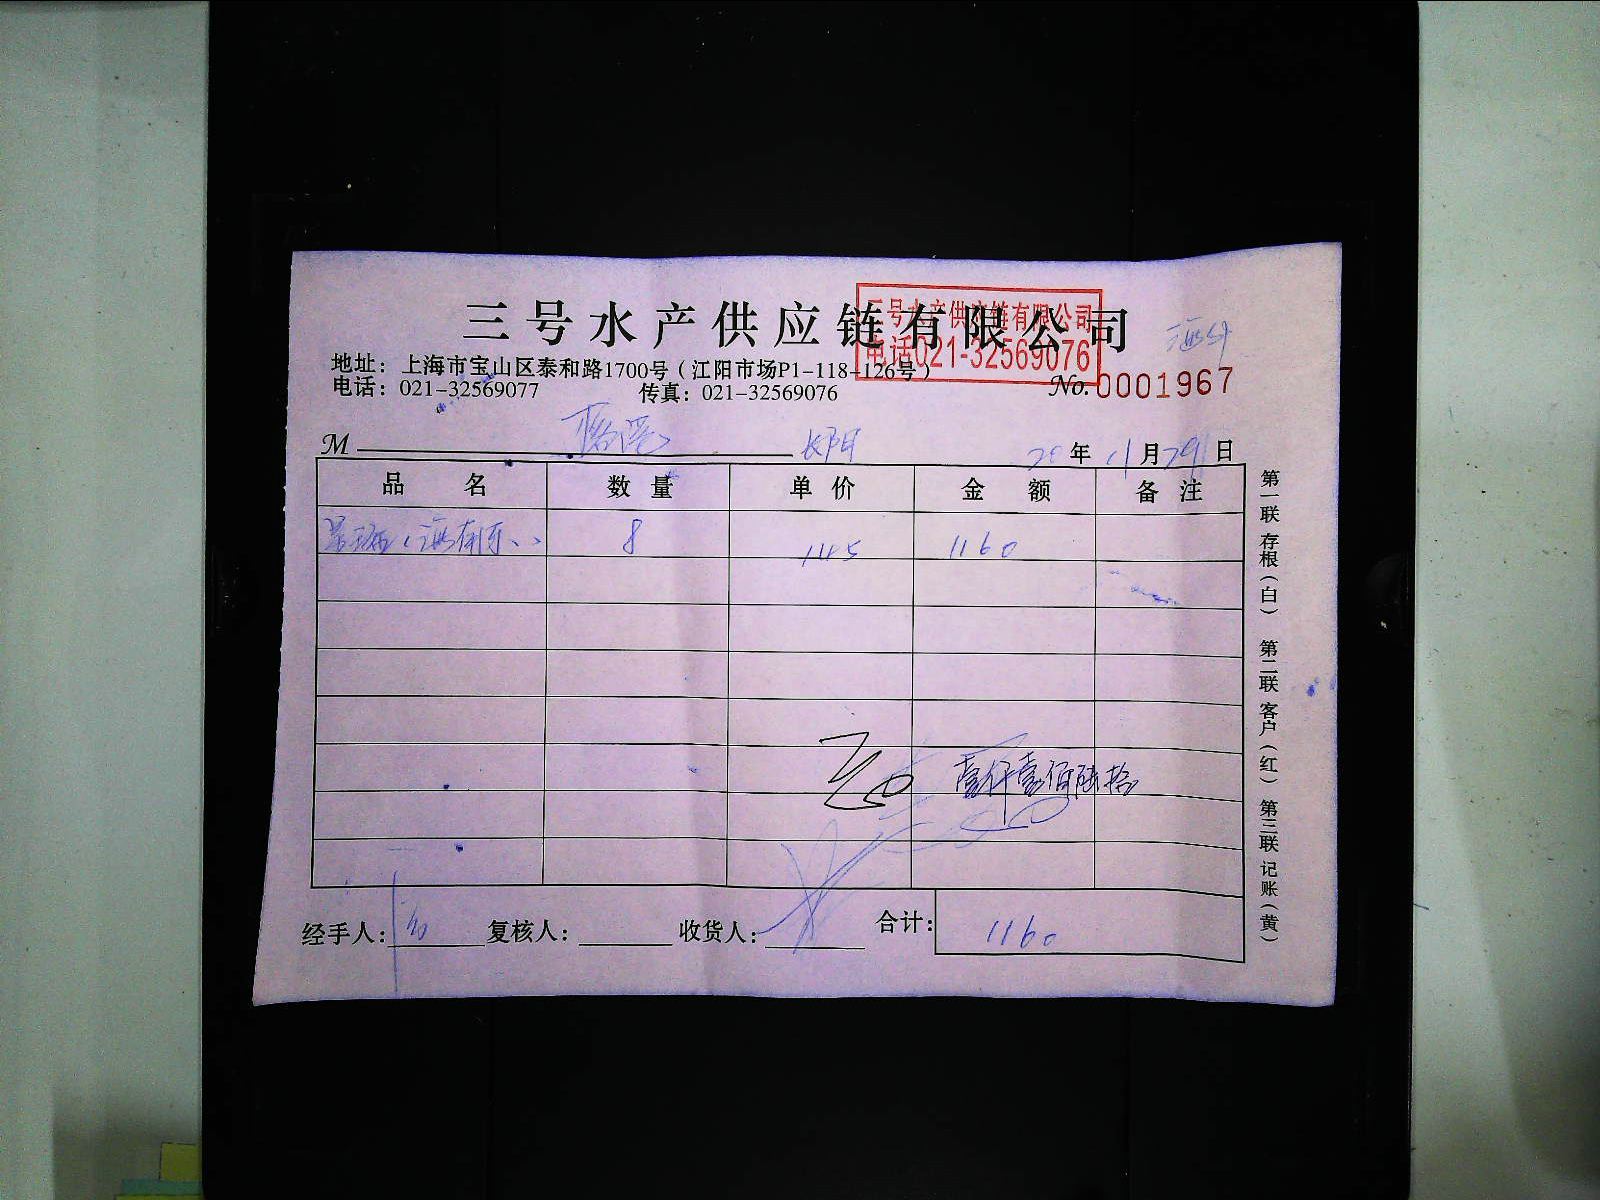 三号水产供应链有限公司
三号水产供应链有限公司
电话021-32569076
地址：上海市宝山区泰和路1700号（江阳市场P1-118-126号）
电话：021-32569077 传真：021-32569076
No. 0001967
M 长阳 20年11月29日
品名 数量 单价 金额 备注
8 145 1160
壹仟壹佰陆拾
经手人： 复核人： 收货人： 合计：1160
第一联 存根（白） 第二联 客户（红） 第三联 记账（黄）